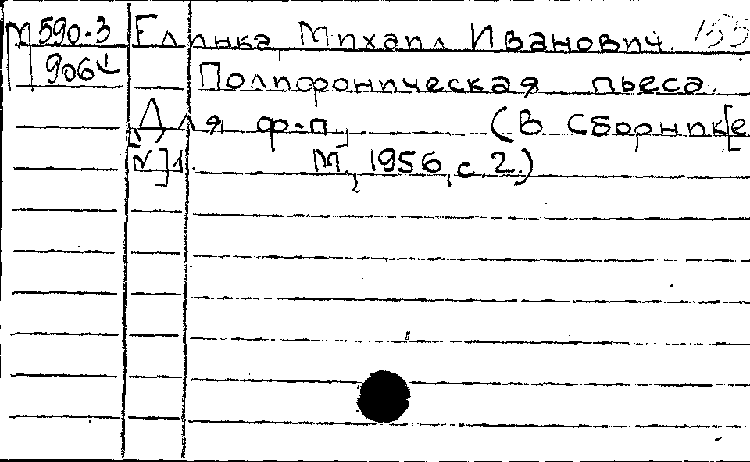 М 590-3 Глинка, Михаил Иванович. 155
906 Полифоническая пьеса.
Для ф-п, (В сборник[е
№]1 М, 1956, с. 2.)